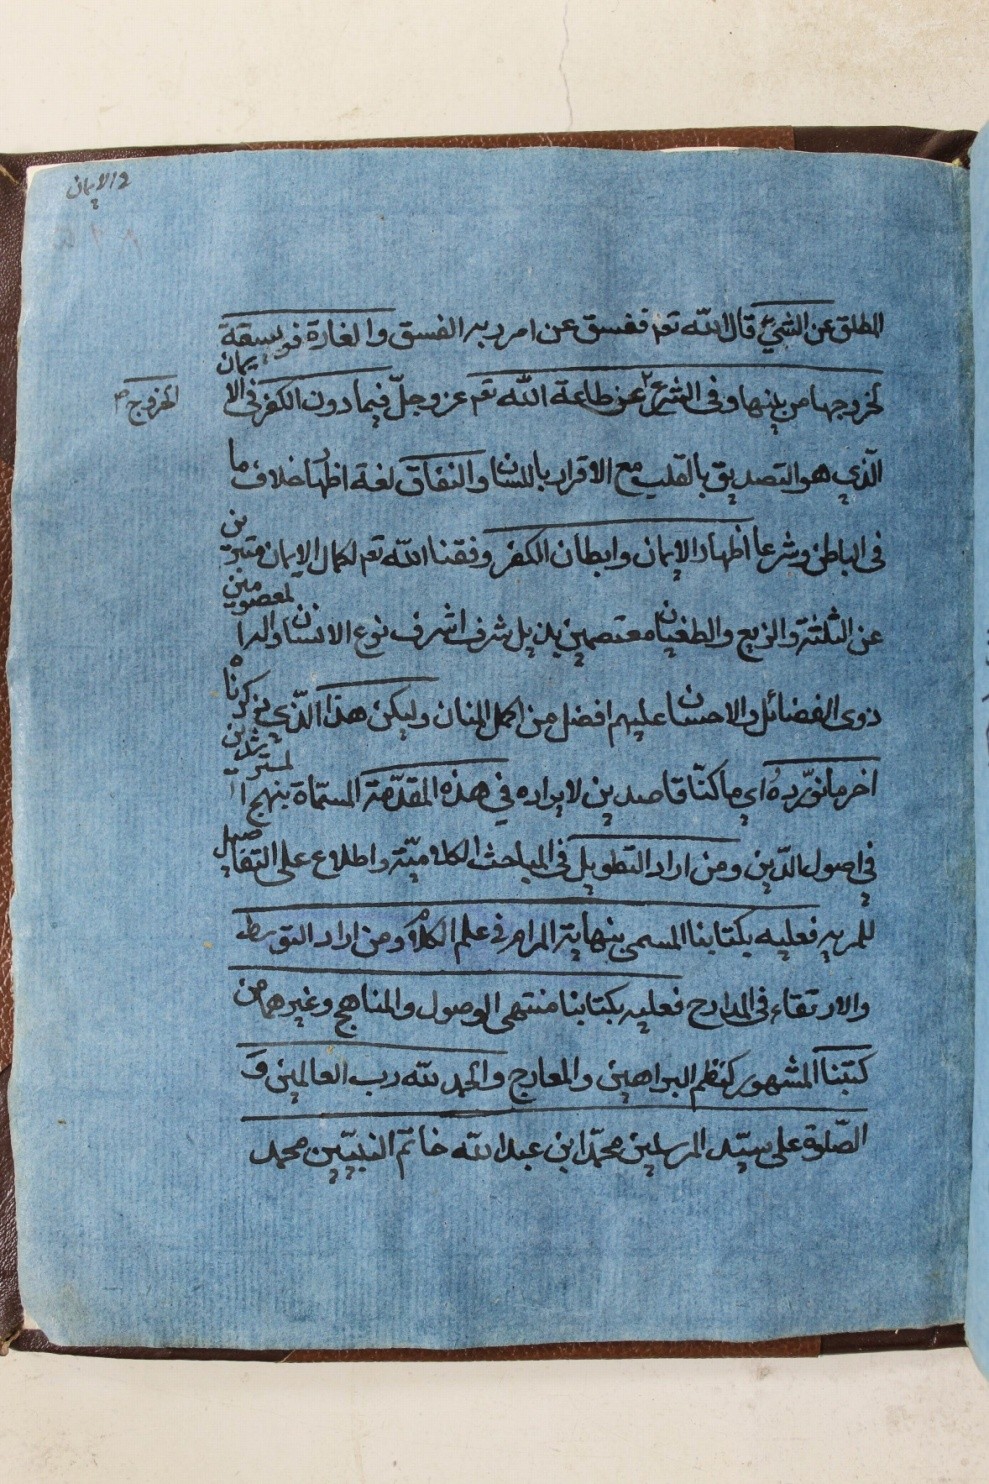 و الایمان
المطلق عن الشیء قال الله تعم ففسق عن امر ربه الفسق والفارة فویسقة
لخروجها من بیتها و فی الشرع ۲ عن طاعة الله تعم عز وجلّ فیما دون الکفر فی الایمان
الخروج ۲
الّذی هو التصدیق بالقلب مع الاقرار باللسان والنفاق لغة اظهار خلاف ما
فی الباطن و شرعا اظهار الایمان وابطان الکفر وفقنا الله تعم لکمال الایمان متبرین
عن الثلثة والزیع والطغیان معتصمین بذیل شرف اشرف نوع الانسان واله المعصومین
ذوی الفضائل والاحسان علیهم افضل من اکمل المنان ولیکن هذا الّذی ذکرناه
اخر ما نورّده ای ما کنّا قاصدین لایراده فی هذه المقدّمة المسمّاة بنهج المسترشدین
فی اصول الدّین ومن اراد التطویل فی المباحث الکلامیّة واطلاع علی التفاصیل
للمریر فعلیه بکتابنا المسمی بنهایة المرام فی علم الکلام ومن اراد التوسط
والارتقاء فی المدارج فعلیه بکتابنا منتهی الوصول والمناهج وغیرهما من
کتبنا المشهور کنظم البراهین والمعارج والحمد لله رب العالمین وَ
الصّلوة علی سیّد المرسلین محمّد ابن عبد الله خاتم النبیّین محمد